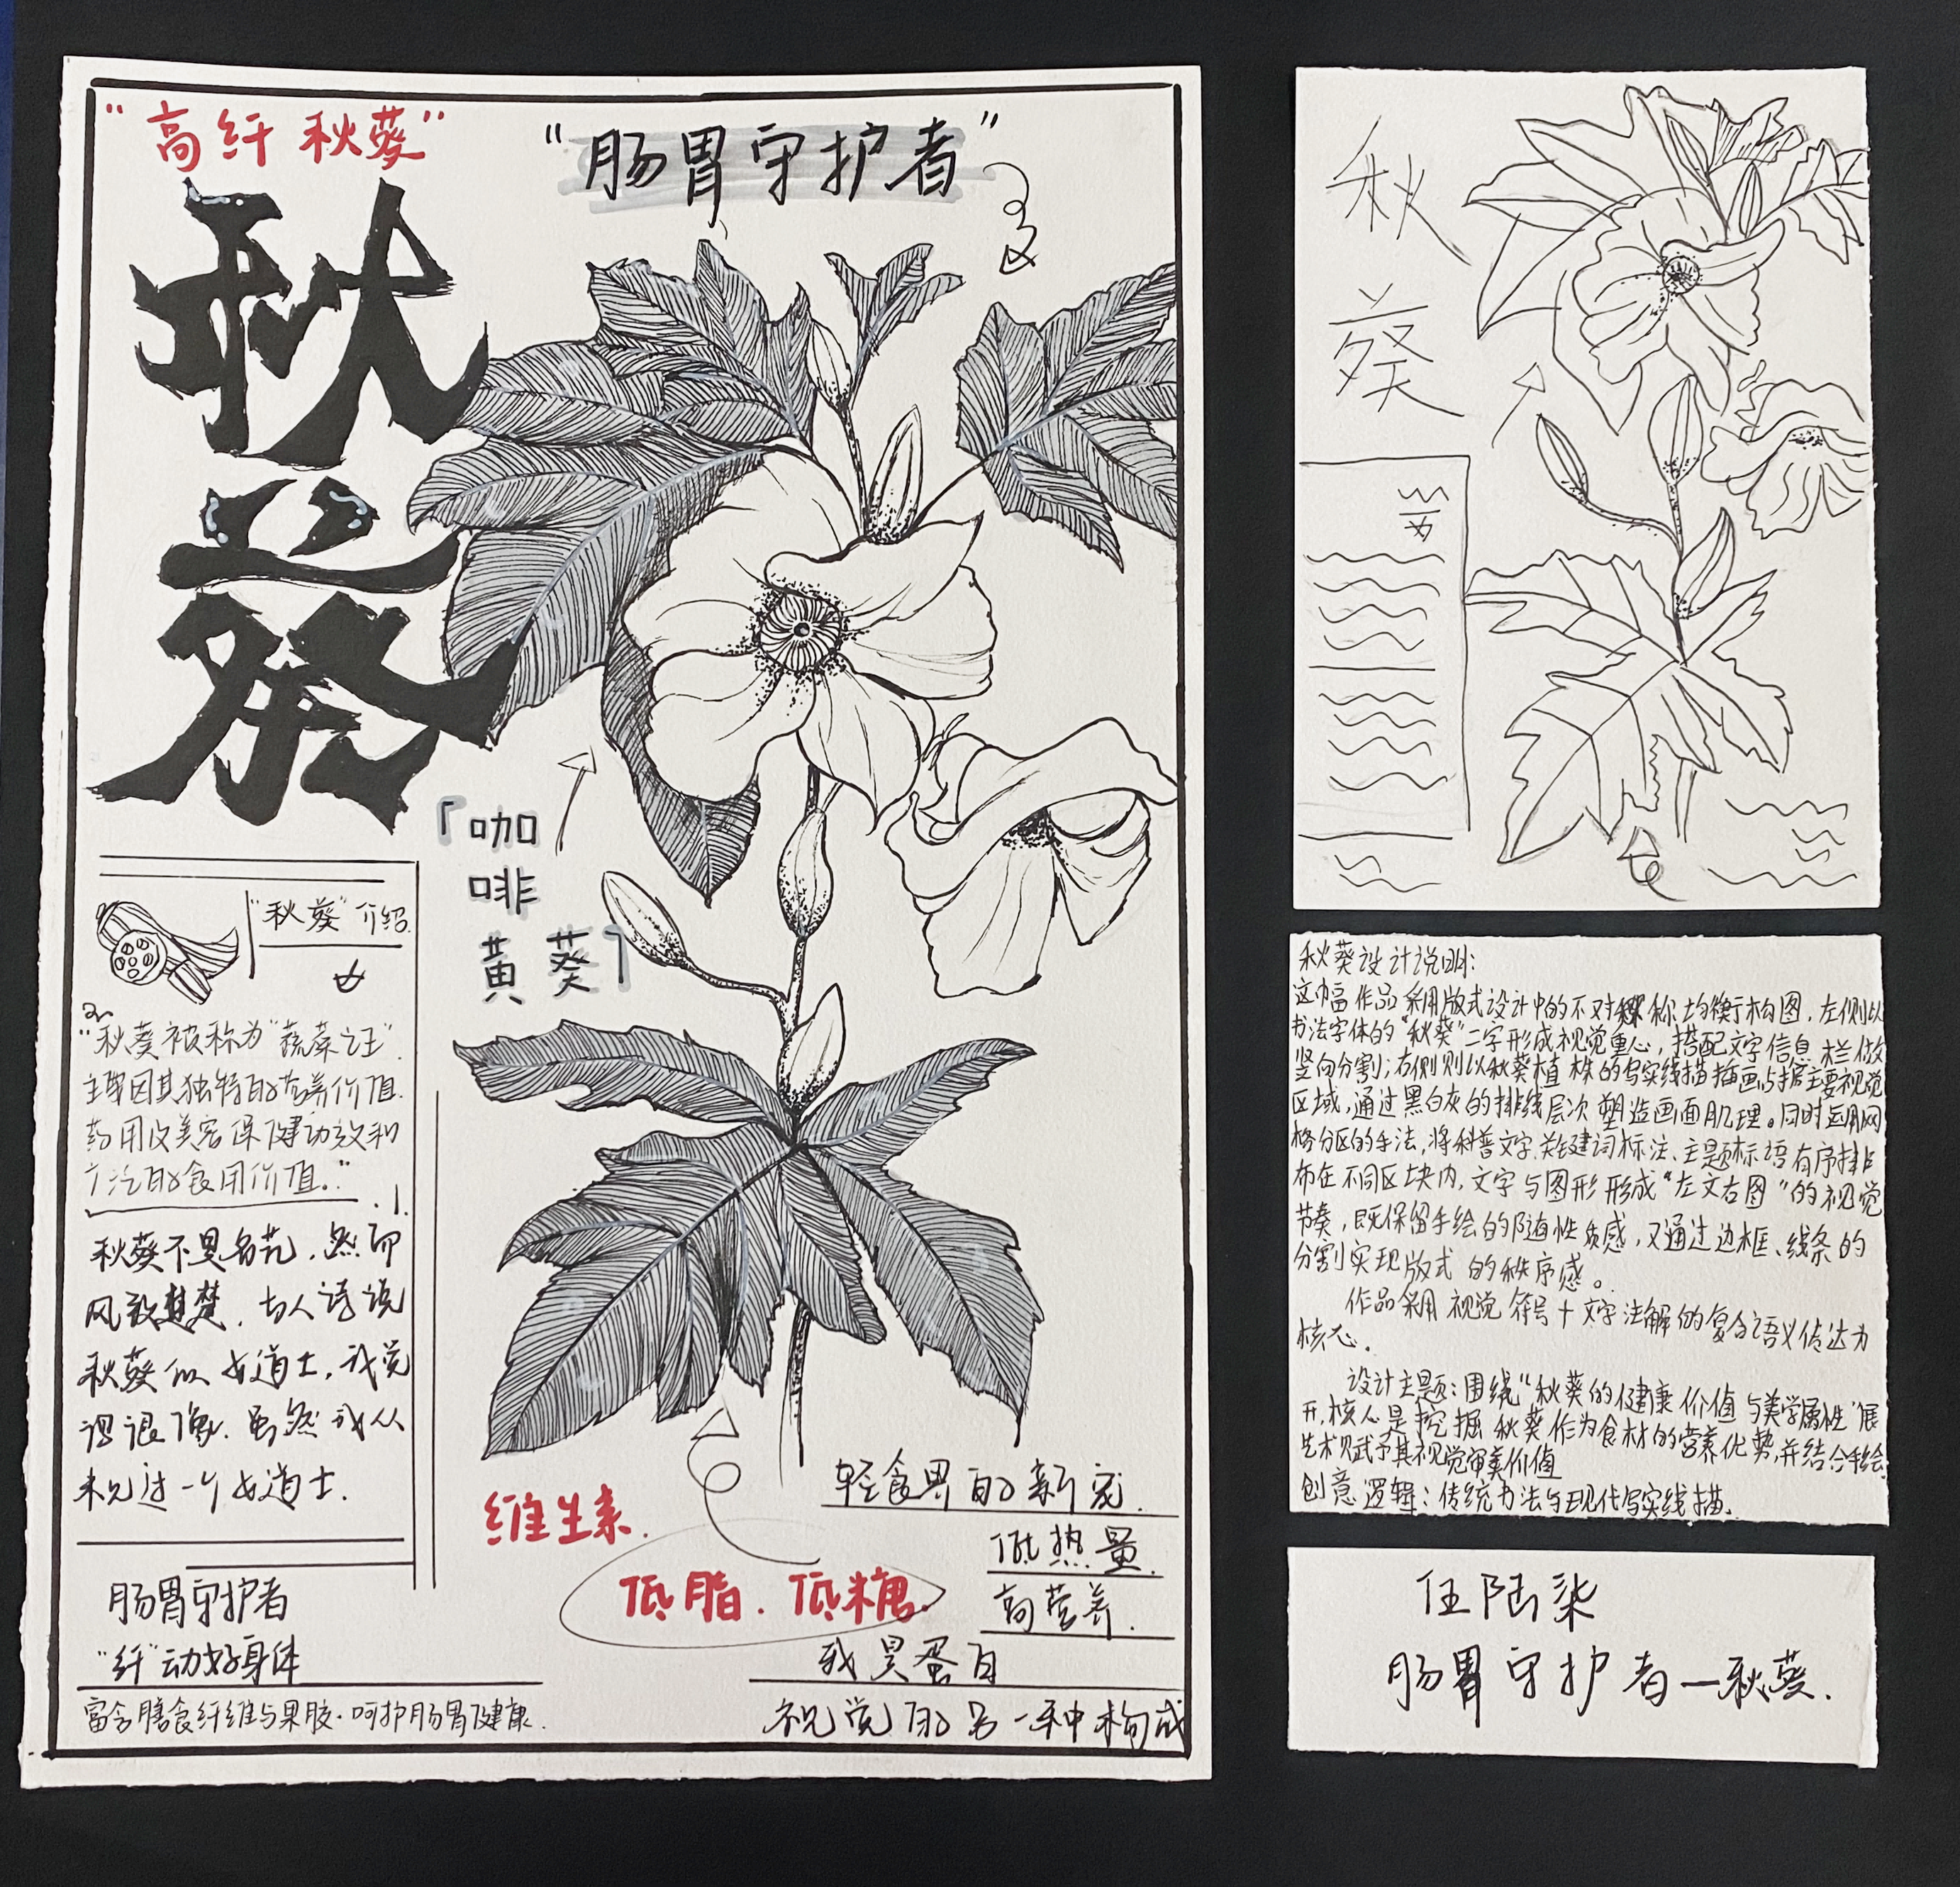 "高纤 秋葵"
"肠胃守护者"
秋
葵
「咖
啡
黄葵」
"秋葵"介绍
"秋葵被称为"蔬菜之王".
主要因其独特的营养价值.
药用及美容保健功效和
广泛的食用价值."
秋葵不是名花.然而
风致楚楚.古人诗说
秋葵似女道士.我觉
得很像.虽然我从
未见过一个女道士.
肠胃守护者
"纤"动好身体
富含膳食纤维与果胶·呵护肠胃健康.
维生素.
低脂.低糖.
轻食界的新宠.
低热量.
高营养.
我是蛋白
视觉的另一种构成
秋
葵
秋葵设计说明:
这幅作品采用版式设计中的不对称均衡构图,左侧以
书法字体的"秋葵"二字形成视觉重心,搭配文字信息栏做
竖向分割;右侧则以秋葵植株的写实线描插画占据主要视觉
区域,通过黑白灰的排线层次塑造画面肌理。同时运用网
格分区的手法,将科普文字.关键词标注、主题标语有序排
布在不同区块内,文字与图形形成"左文右图"的视觉
节奏,既保留手绘的随性质感,又通过边框、线条的
分割实现版式的秩序感。
作品采用视觉符号+文字注解的复合语义传达为
核心.
设计主题:围绕"秋葵的健康价值与美学属性"展
开,核心是挖掘秋葵作为食材的营养优势,并结合手绘
艺术赋予其视觉审美价值
创意逻辑:传统书法与现代写实线描.
任陆柒
肠胃守护者—秋葵.